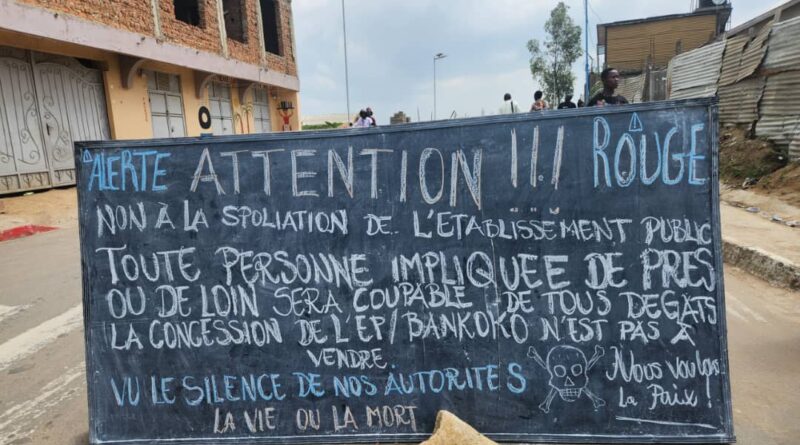 ALERTE ATTENTION !!! ROUGE
NON À LA SPOLIATION DE.. L'ETABLISSEMENT PUBLIC
TOUTE PERSONNE IMPLIQUEE DE PRES
OU DE LOIN SERA COUPABLE DE TOUS DEGATS
LA CONCESSION DE L'EP/BANKOKO N'EST PAS À
VENDRE
VU LE SILENCE DE NOS AUTORITES
LA VIE OU LA MORT
Nous voulons
La Paix !